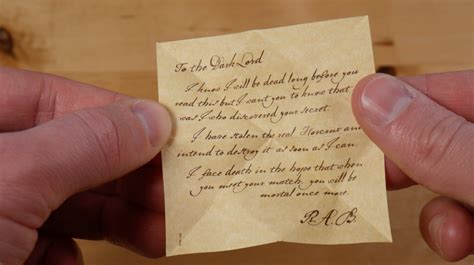 To the Dark Lord
I know I will be dead long before you
read this but I want you to know that
was I who discovered your secret.
I have stolen the real Horcrux and
intend to destroy it as soon as I can.
I face death in the hope that when
you meet your match, you will be
mortal once more.
R.A.B.